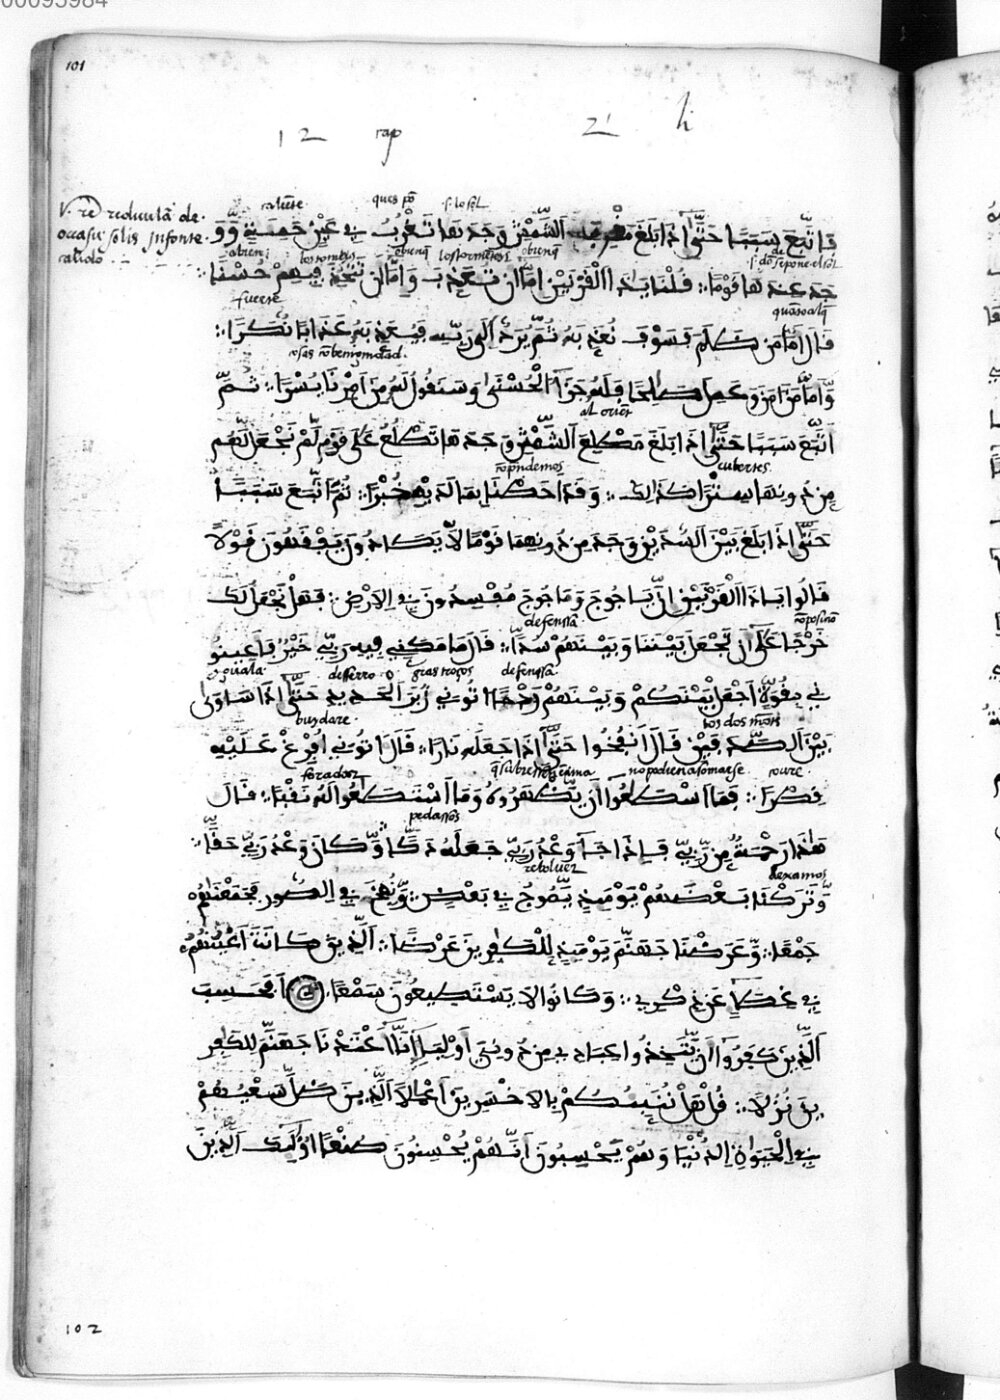 00095984
101
12 rap 21 h
caliēte. ques pō s. lo sol
V. re ridiculā de.
occasu solis in fonte
calido
فَاتَّبَعَ سَبَبًا حَتَّىٰ إِذَا بَلَغَ مَغْرِبَ الشَّمْسِ وَجَدَهَا تَغْرُبُ فِي عَيْنٍ حَمِئَةٍ وَّوَ
جَدَ عِندَهَا قَوْمًا ؛ قُلْنَا يَٰذَا الْقَرْنَيْنِ إِمَّا أَن تُعَذِّبَ وَإِمَّا أَن تَتَّخِذَ فِيهِمْ حُسْنًا
fuerte
قَالَ أَمَّا مَن ظَلَمَ فَسَوْفَ نُعَذِّبُهُ ثُمَّ يُرَدُّ إِلَىٰ رَبِّهِ فَيُعَذِّبُهُ عَذَابًا نُّكْرًا
وَّأَمَّا مَنْ ءَامَنَ وَعَمِلَ صَٰلِحًا فَلَهُ جَزَآءُ الْحُسْنَىٰ وَسَنَقُولُ لَهُ مِنْ أَمْرِنَا يُسْرًا ؛ ثُمَّ
al oriēt
اتَّبَعَ سَبَبًا حَتَّىٰ إِذَا بَلَغَ مَطْلِعَ الشَّمْسِ وَجَدَهَا تَطْلُعُ عَلَىٰ قَوْمٍ لَّمْ نَجْعَل لَّهُم
cubertes
مِن دُونِهَا سِتْرًا كَذَٰلِكَ ؛ وَقَدْ أَحَطْنَا بِمَا لَدَيْهِ خُبْرًا ؛ ثُمَّ اتَّبَعَ سَبَبًا
حَتَّىٰ إِذَا بَلَغَ بَيْنَ السُّدَّيْنِ وَجَدَ مِن دُونِهِمَا قَوْمًا لَّا يَكَادُونَ يَفْقَهُونَ قَوْلًا
قَالُوا يَٰذَا الْقَرْنَيْنِ إِنَّ يَاجُوجَ وَمَاجُوجَ مُفْسِدُونَ فِي الْأَرْضِ ؛ فَهَلْ نَجْعَلُ لَكَ
defenssa
خَرْجًا عَلَىٰ أَن تَجْعَلَ بَيْنَنَا وَبَيْنَهُمْ سُدًّا ؛ قَالَ مَا مَكَّنِّي فِيهِ رَبِّي خَيْرٌ فَأَعِينُو
yguala de fierro defenssa
نِي بِقُوَّةٍ أَجْعَلْ بَيْنَكُمْ وَبَيْنَهُمْ رَدْمًا اتُونِي زُبَرَ الْحَدِيدِ حَتَّىٰ إِذَا سَاوَىٰ
buydare los dos mōtes
بَيْنَ الصَّدَفَيْنِ قَالَ انفُخُوا حَتَّىٰ إِذَا جَعَلَهُ نَارًا ؛ قَالَ اتُونِي أُفْرِغْ عَلَيْهِ
foradar no podien asomarse coure
قِطْرًا ؛ فَمَا اسْطَٰعُوا أَن يَّظْهَرُوهُ وَمَا اسْتَطَٰعُوا لَهُ نَقْبًا ؛ قَالَ
pedassos
هَٰذَا رَحْمَةٌ مِّن رَّبِّي فَإِذَا جَآءَ وَعْدُ رَبِّي جَعَلَهُ دَكًّا وَّكَانَ وَعْدُ رَبِّي حَقًّا
rebolver dexamos
وَّتَرَكْنَا بَعْضَهُمْ يَوْمَئِذٍ يَّمُوجُ فِي بَعْضٍ ؛ وَّنُفِخَ فِي الصُّورِ فَجَمَعْنَٰهُمْ
جَمْعًا ؛ وَّعَرَضْنَا جَهَنَّمَ يَوْمَئِذٍ لِّلْكَٰفِرِينَ عَرْضًا ؛ الَّذِينَ كَانَتْ أَعْيُنُهُمْ
فِي غِطَآءٍ عَن ذِكْرِي ؛ وَكَانُوا لَا يَسْتَطِيعُونَ سَمْعًا أَفَحَسِبَ
الَّذِينَ كَفَرُوا أَن يَّتَّخِذُوا عِبَادِي مِن دُونِيَ أَوْلِيَآءَ إِنَّا أَعْتَدْنَا جَهَنَّمَ لِلْكَٰفِرِ
ينَ نُزُلًا ؛ قُلْ هَلْ نُنَبِّئُكُم بِالْأَخْسَرِينَ أَعْمَالًا الَّذِينَ ضَلَّ سَعْيُهُمْ
فِي الْحَيَوٰةِ الدُّنْيَا وَهُمْ يَحْسِبُونَ أَنَّهُمْ يُحْسِنُونَ صُنْعًا أُولَٰئِكَ الَّذِينَ
102